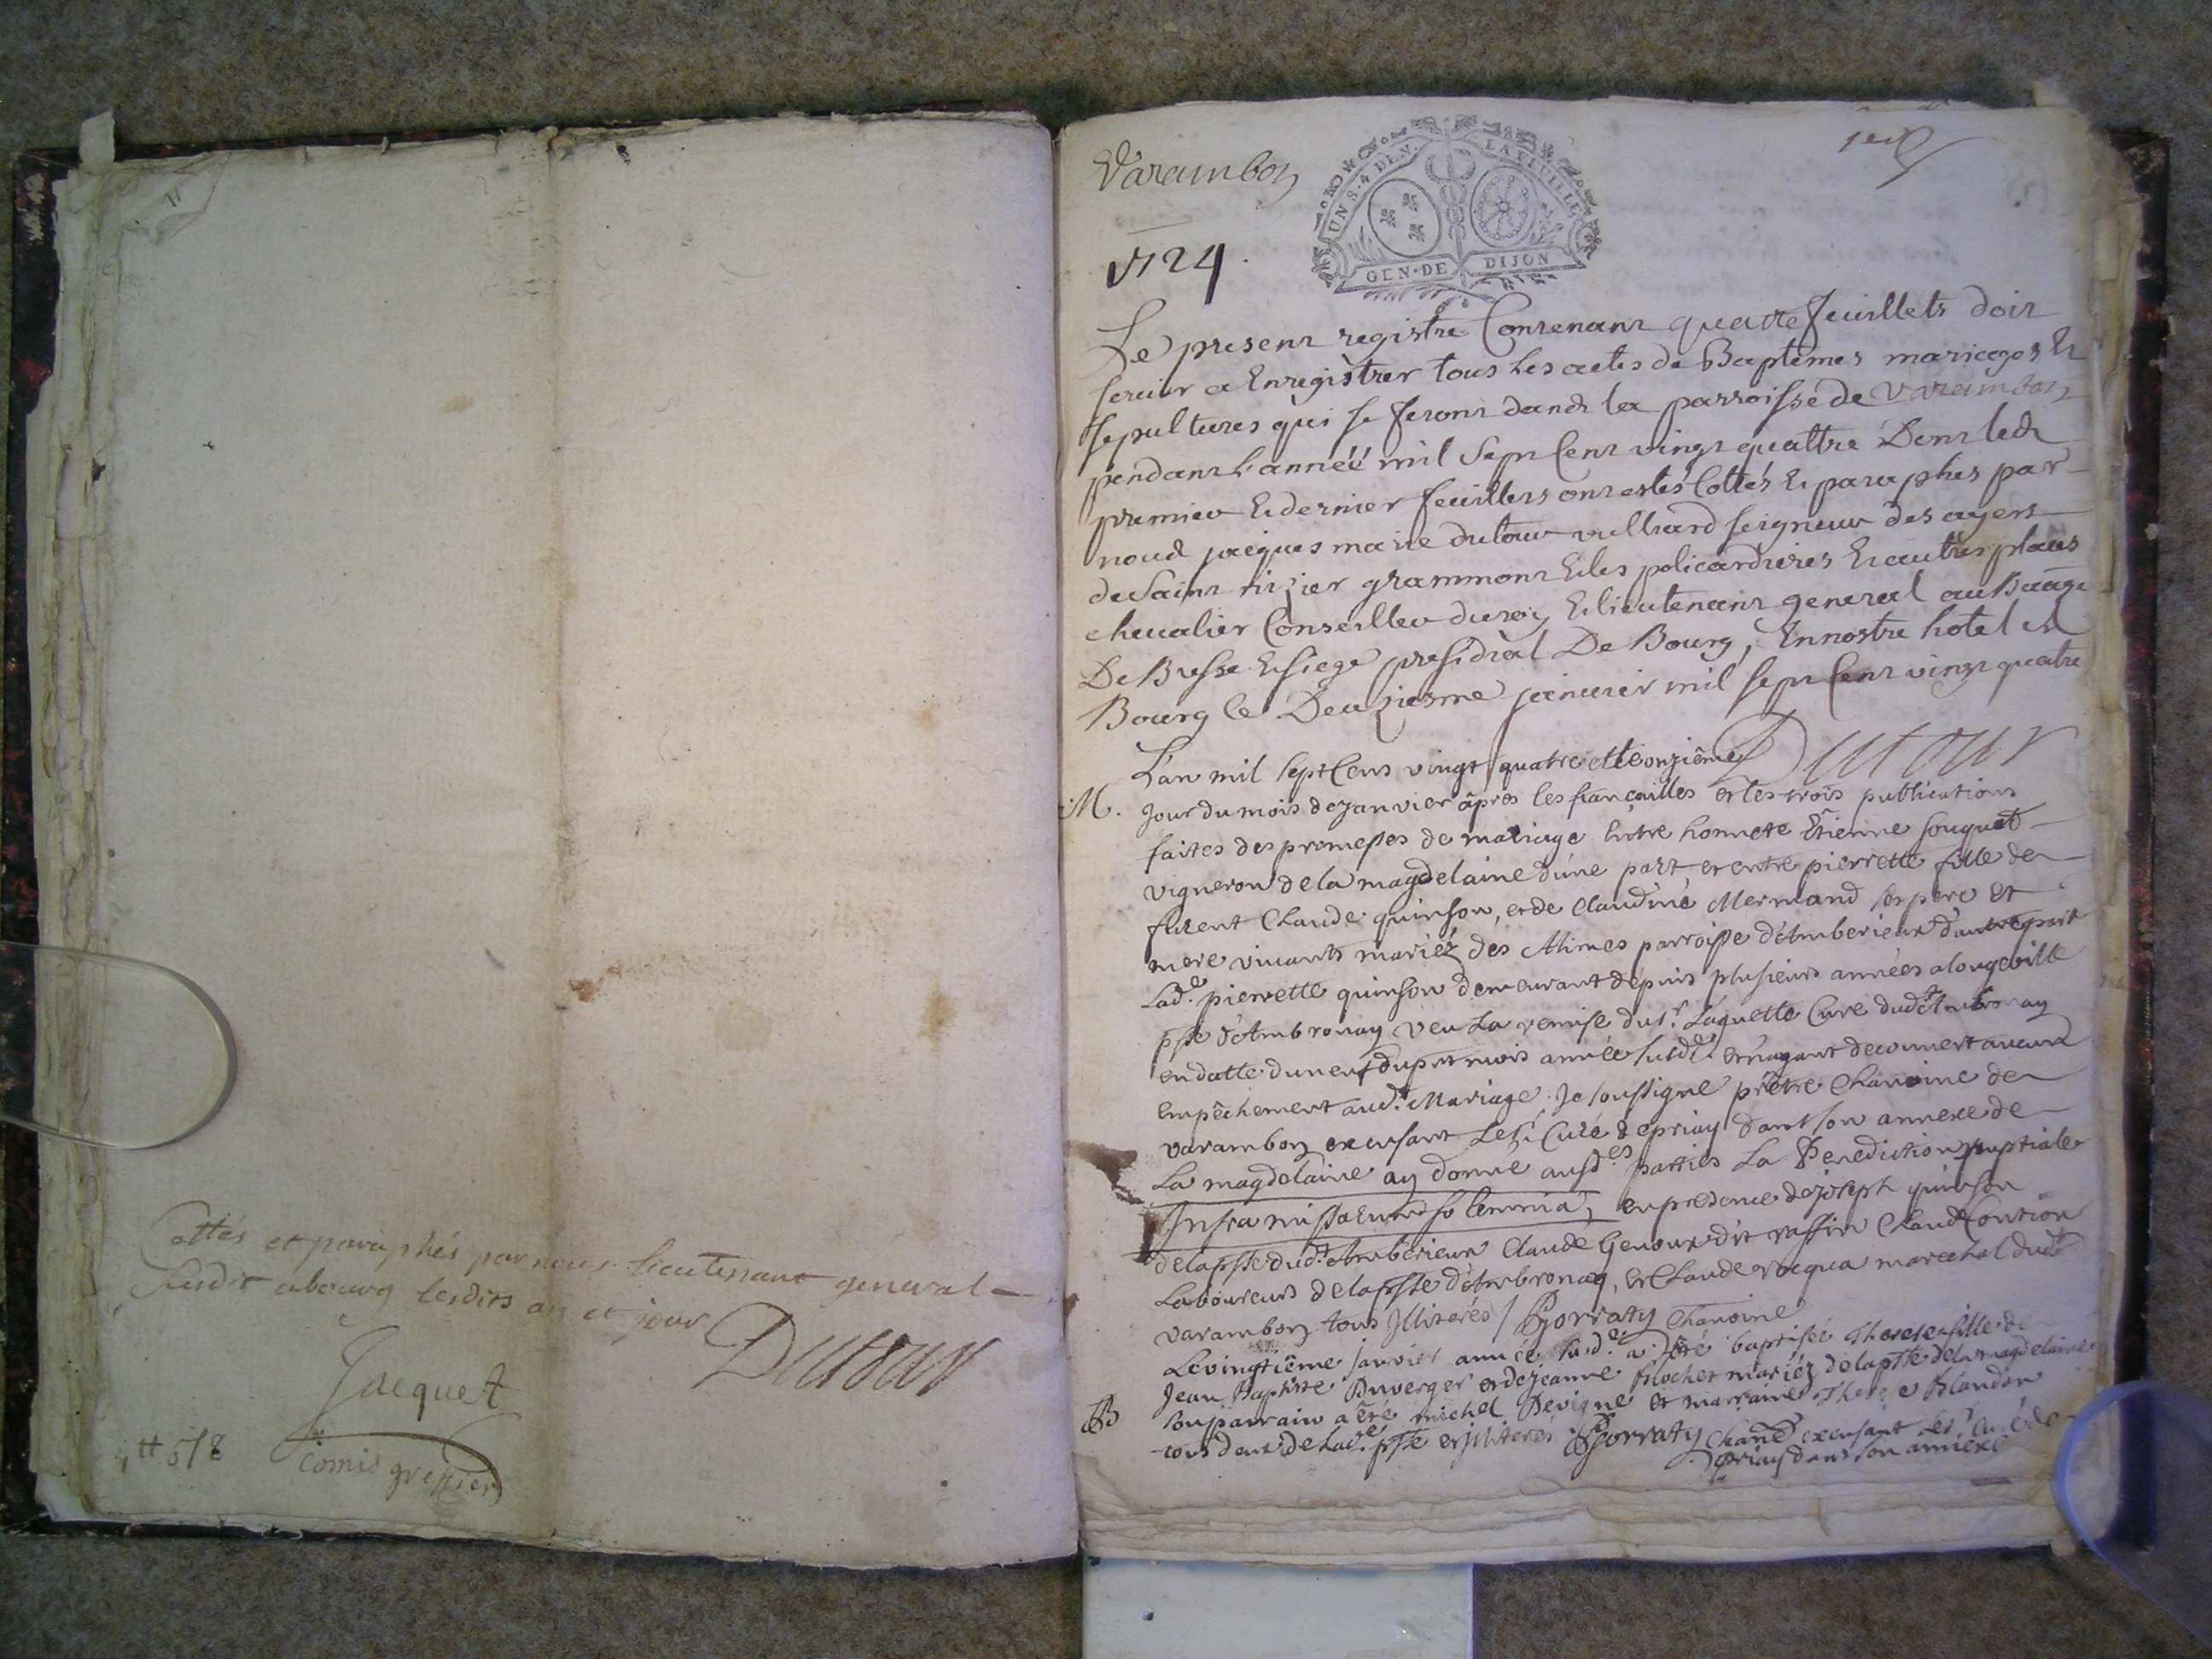 Cottés et paraphés par nous lieutenant general
susdit a bourg lesdits an et jour
Dutour
Jacquet
comis greffier
Varambon
1724.
UN S. 4 DEN. LA FEUILLE
GEN. DE DIJON
Le present registre Contenant quatre feuillets doit
servir a Enregistrer tous les actes de Baptêmes mariages Et
sepultures qui se feront dans la parroisse de Varambon
pendant l'année mil sept Cent vingt quattre Dont les
premier Et dernier feuillets ont estés Cottés Et paraphés par
nous jacques marie dutour vulliard seigneur des
de saint nizier grammont Et les policardieres Et autres places
chevalier Conseiller du roy Et lieutenant general au Baage
De Bresse Et siege presidial De Bourg, En nostre hotel a
Bourg le Deuziesme janvier mil sept Cent vingt quatre
Dutour
L'an mil sept Cens vingt quatre et le onziême
M. jour du mois de Janvier âpres les fiancailles et les trois publications
faites des promesses de mariage Entre honnete Etienne fouquet
vigneron de la magdelaine d'une part et entre pierrette fille de
Claude quinson, et de Claudine Mermand ses pere et
mere vivants mariéz des Alimes parroisse d'Amberieux d'autre part
Lad.e pierrette quinson demeurant depuis plusieurs années a longeville
psse d'Ambronay veu La remise du s.r Laguette Curé dud.t Ambronay
en datte du neuf du pnt mois année susd.e et n'ayant decouvert aucun
Empêchement aud.t Mariage Je soussigné prêtre Chanoine de
varambon excusant Le s.r Curé de priay dans son annexe de
La magdelaine ay donné ausd.es parties La Benediction nuptiale
Infra missarum solemnia, en presence de joseph quinson
de la psse dud.t Amberieux Claude Genoux dit raffin Claude
Laboureurs de la psse d'Ambronay, et Claude rocqua marechal dud.t
varambon tous Illiterés / Gorraty Chanoine
Le vingtiême janvier année susd.e a été baptisée Therese fille de
Jean Baptiste Duverger et de jeanne Blochet mariéz de la psse de la magdelaine
B son parrain a été michel Devigne et marraine Therese Blandon
tous deux de Lad.e psse et Illiterés Gorraty Chan.e excusant Le s.r Curé de
priay dans son annexe